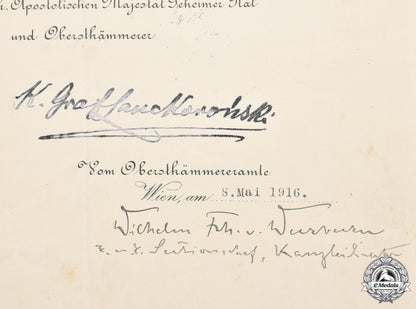 k. Apostolischen Majestät Geheimer Rat
und Obersthämmerer
K. Graf Lanckoroński
Vom Obersthämmereramte
Wien, am 8. Mai 1916.
Wilhelm Frh. v.
k. u. k. Sectionschef, Kanzleidirektor
eMedals